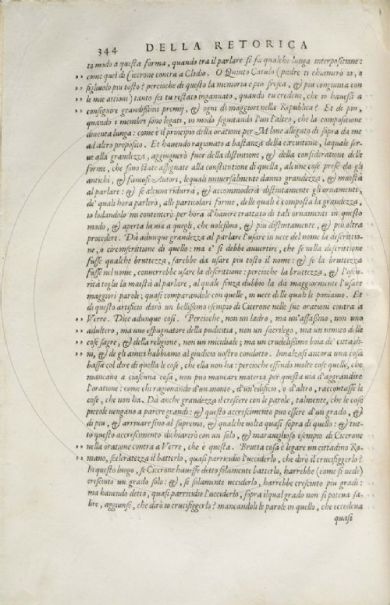 344 DELLA RETORICA
to modo a questa forma, quando tra il parlare si fa qualche lunga interpositione:
come quel di Cicerone contra a Clodio. O Quinto Catulo (padre ti chiamerò io, o
figliuolo più tosto? percioche di questo la memoria è più fresca, & più congiunta con
le mie attioni) tanto sei tu restato ingannato, quando tu credevi, che io havessi a
conseguire grandissimi premij, & ogni di maggiori nella Republica? Et di più,
quando i membri sono legati, in modo seguitando l'un l'altro, che la compositione
diventa lunga: come è il principio della oratione per Milone allegato di sopra da me
ad altro proposito. Et havendo ragionato a bastanza della essecutione, la quale ser-
ve alla grandezza, aggiugnerò fuor della distintione, & della consideratione delle
forme, che sino state assegnate alla constitutione di quella, alcune cose prese da gli
antichi, & famosi Autori, le quali universalmente danno grandezza, & maestà
al parlare: & se alcun ridurrà, & accommoderà distintamente gli ornamenti,
de' quali hora parlerò, alle particolari forme, delle quali è composta la grandezza,
io lodandolo mi contenterò per hora d'havere trattato di tali ornamenti in questo
modo, & aperta la via a quegli, che volessino, & più distintamente, & più altra
procedere. Dà adunque grandezza al parlare l'usare in vece del nome la descrittio-
ne, o circonscrittione di quello: ma e' si debbe avvertire, che se nella descrittione
fusse qualche bruttezza, sarebbe da usare più tosto il nome: & se la bruttezza
fusse nel nome, converrebbe usare la descrittione: percioche la bruttezza, & l'oscu-
rità toglie la maestà al parlare, al quale senza dubbio la dà maggiormente l'usare
maggiori parole; quasi comparandole con quelle, in vece delle quali le poniamo. Et
di questo artificio darò un bellissimo esempio di Cicerone nelle sue orationi contra a
Verre. Dice adunque così. Percioche, non un ladro, ma un'assassino, non uno
adultero, ma uno espugnatore della pudicitia, non un sacrilego, ma un nemico delle
cose sagre, & della religione, non un micidiale; ma un crudelissimo boia de' cittadi-
ni, & de gli amici habbiamo al giudicio vostro condotto. Innalzasi ancora una cosa
bassa col dire di quella le cose, che ella non ha: percioche essendo molte cose quelle, che
mancano a ciascuna cosa, non può mancare materia per questa via d'aggrandire
l'oratione: come chi ragionando d'un monte, d'un'edificio, o d'altro, raccontasse le
cose, che non ha. Dà anche grandezza il crescere con le parole, talmente, che le cose
piccole vengano a parere grandi: & questo accrescimento può essere d'un grado, &
di più, & arrivare sino al supremo, & qualche volta quasi sopra di quello: & tut-
to questo accrescimento dichiarerò con un solo, & maraviglioso esempio di Cicerone
nella oratione contra a Verre, che è questa. Brutta cosa è legare un cittadino Ro-
mano, sceleratezza il batterlo, quasi parricidio l'ucciderlo, che dirò il crucifiggerlo?
In questo luogo, se Cicerone havesse detto solamente batterlo, harebbe (come si vede)
cresciuto un grado solo: &, se solamente ucciderlo, harrebbe cresciuto più gradi:
ma havendo detto, quasi parricidio l'ucciderlo, sopra il qual grado non si poteva sa-
lire, aggiunse, che dirò io crucifiggerlo? mancandoli le parole in quello, che eccedeva
quasi